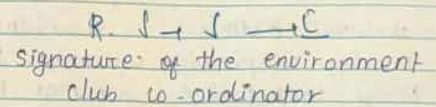 signature of the environment
club co-ordinator